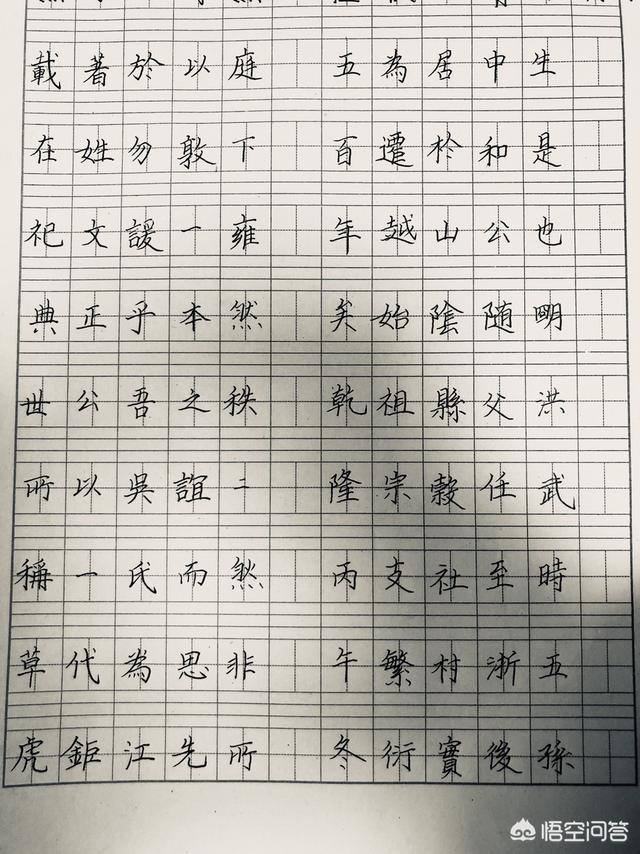 生是也明洪武時五孫
中和公随父任至浙後
居於山陰縣穀社村實
為遷越始祖宗支繁衍
五百年矣乾隆丙午冬
庭下雍然秩二然非所
以敦一本之誼而思先
於勿諼乎吾吳氏為江
著姓文正公以一代鉅
載在祀典世所稱草虎
悟空问答